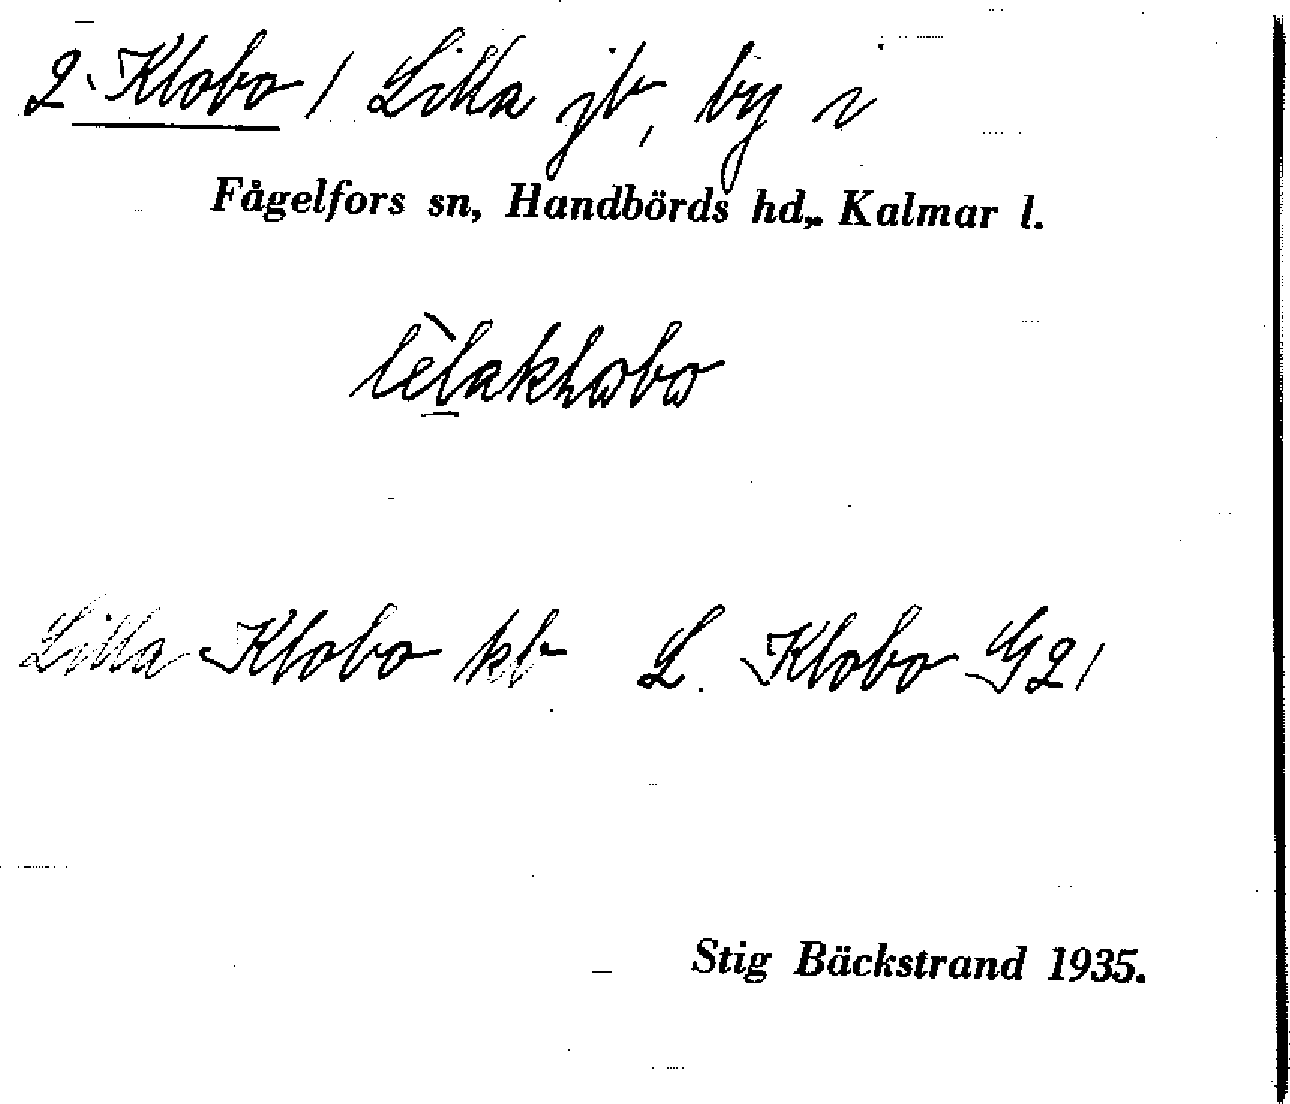 2. Klobo / Lilla jb, by i
Fågelfors sn, Handbörds hd, Kalmar l.
lèlakløbo
Lilla Klobo kb L. Klobo G21
Stig Bäckstrand 1935.